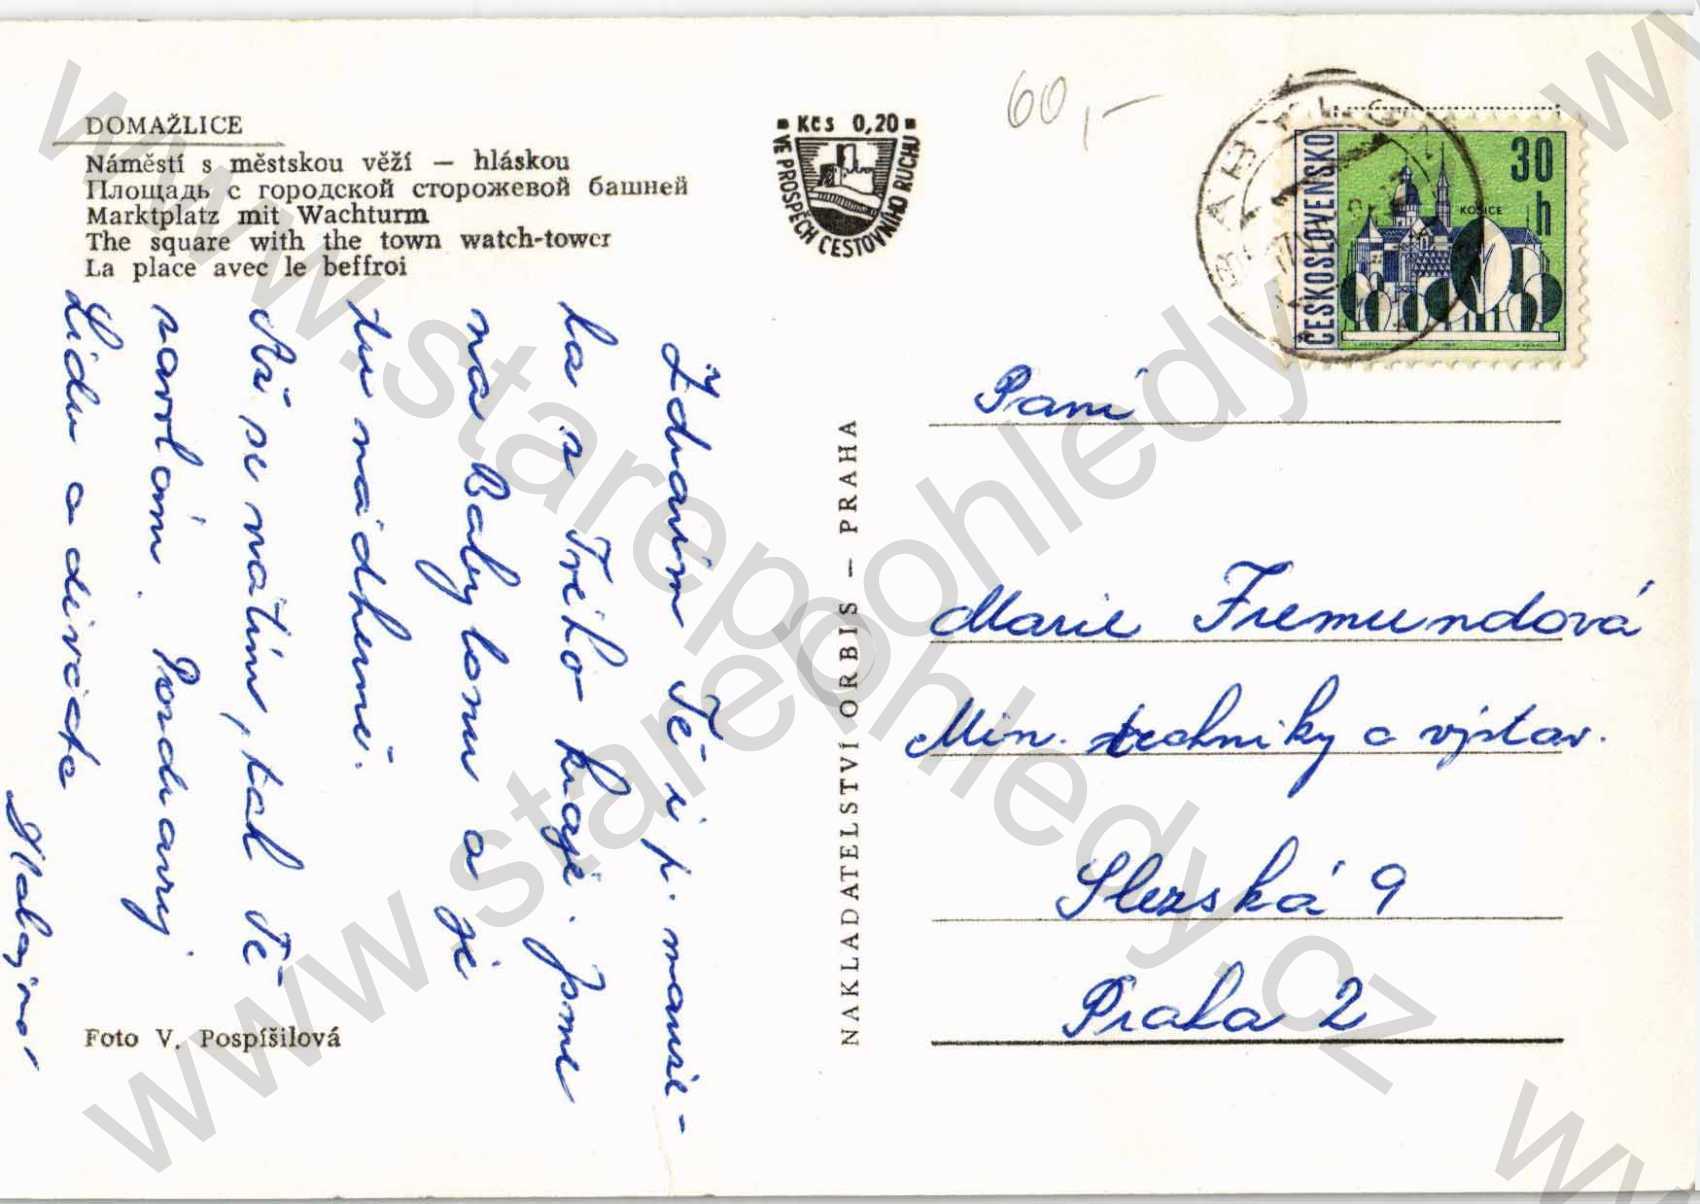 DOMAŽLICE
Náměstí s městskou věží — hláskou
Площадь с городской сторожевой башней
Marktplatz mit Wachturm
The square with the town watch-tower
La place avec le beffroi
Kčs 0,20
VE PROSPĚCH CESTOVNÍHO RUCHU
60,-
ČESKOSLOVENSKO
30 h
KOŠICE
Zdravím Tě i p. manže-
la z Tvého kraje. Jsme
na Babylonu a je
tu nádherně.
Až se vrátím, tak Tě
zavolám. Pozdravuj
Lídu a děvčata
NAKLADATELSTVÍ ORBIS — PRAHA
Foto V. Pospíšilová
Paní
Marie Fremundová
Min. techniky a výstav.
Slezská 9
Praha 2
www.starepohledy.cz
www.starepohledy.cz